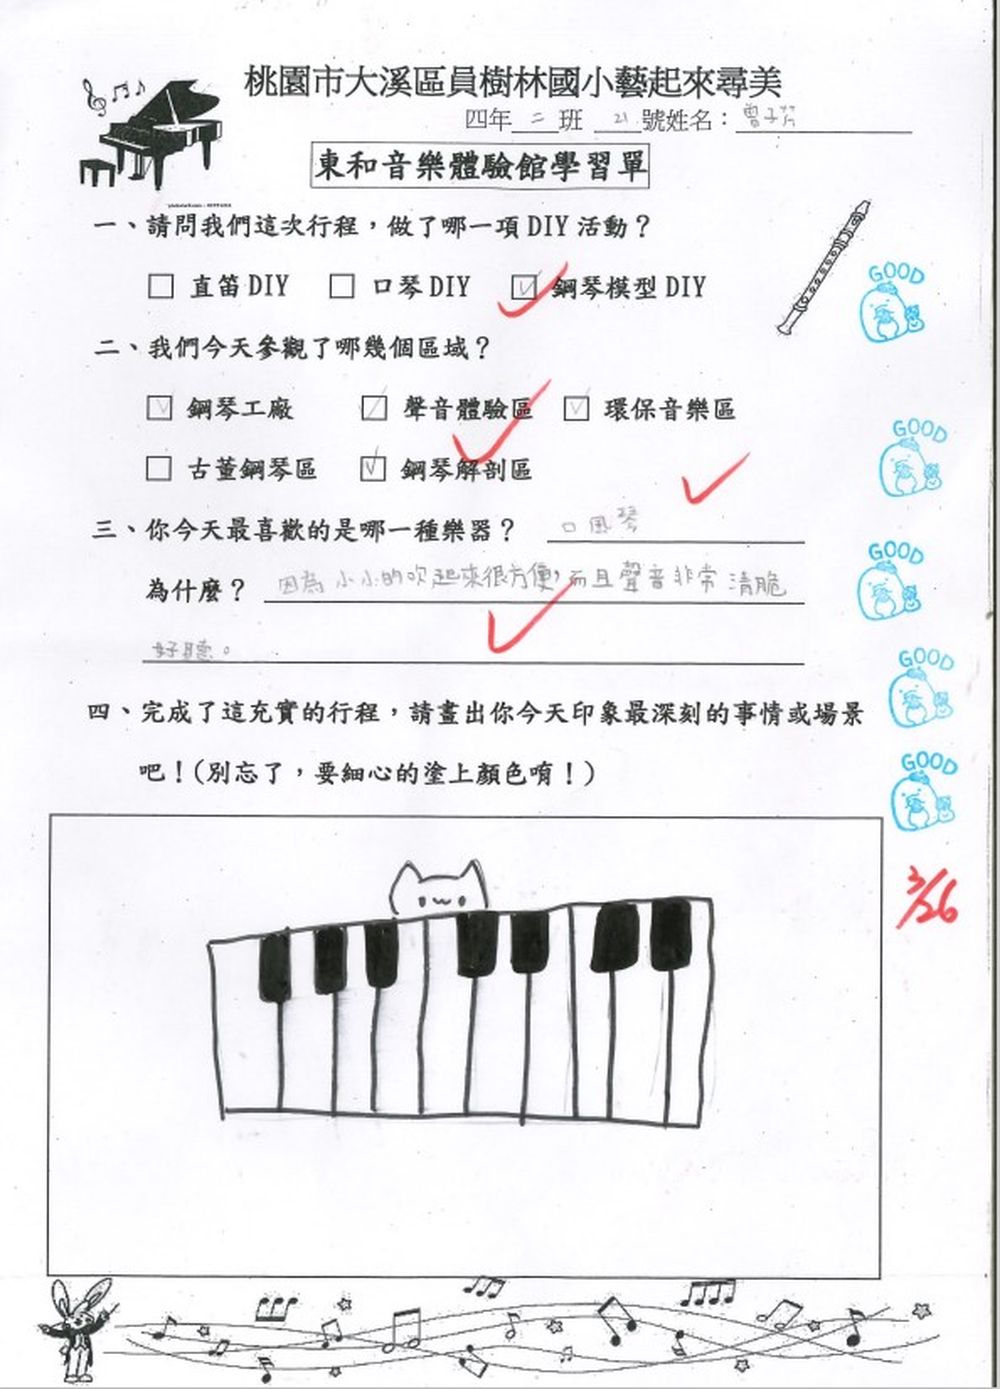 桃園市大溪區員樹林國小藝起來尋美
四年二班 21號姓名：曾子芹
東和音樂體驗館學習單
一、請問我們這次行程，做了哪一項DIY活動？
□ 直笛DIY □ 口琴DIY ☑ 鋼琴模型DIY
GOOD
二、我們今天參觀了哪幾個區域？
☑ 鋼琴工廠 ☑ 聲音體驗區 ☑ 環保音樂區
GOOD
□ 古董鋼琴區 ☑ 鋼琴解剖區
三、你今天最喜歡的是哪一種樂器？ 口風琴
GOOD
為什麼？ 因為小小的吹起來很方便，而且聲音非常清脆
好聽。
GOOD
四、完成了這充實的行程，請畫出你今天印象最深刻的事情或場景
吧！(別忘了，要細心的塗上顏色唷！)
GOOD
3/26